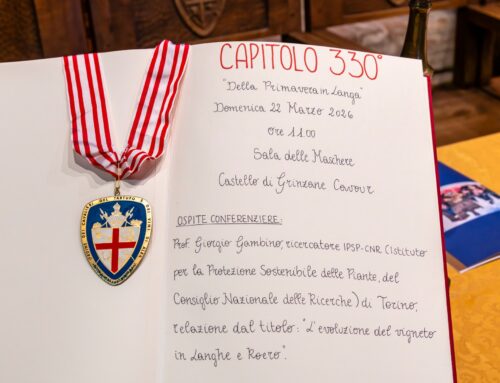 CAPITOLO 330°
"Della Primavera in Langa"
Domenica 22 Marzo 2026
Ore 11.00
Sala delle Maschere
Castello di Grinzane Cavour
OSPITE CONFERENZIERE:
Prof. Giorgio Gambino, ricercatore IPSP-CNR (Istituto
per la Protezione Sostenibile delle Piante, del
Consiglio Nazionale delle Ricerche) di Torino,
relazione dal titolo: "L'evoluzione del vigneto
in Langhe e Roero".
ORDINE DEI CAVALIERI DEL TARTUFO E DEI VINI DI ALBA